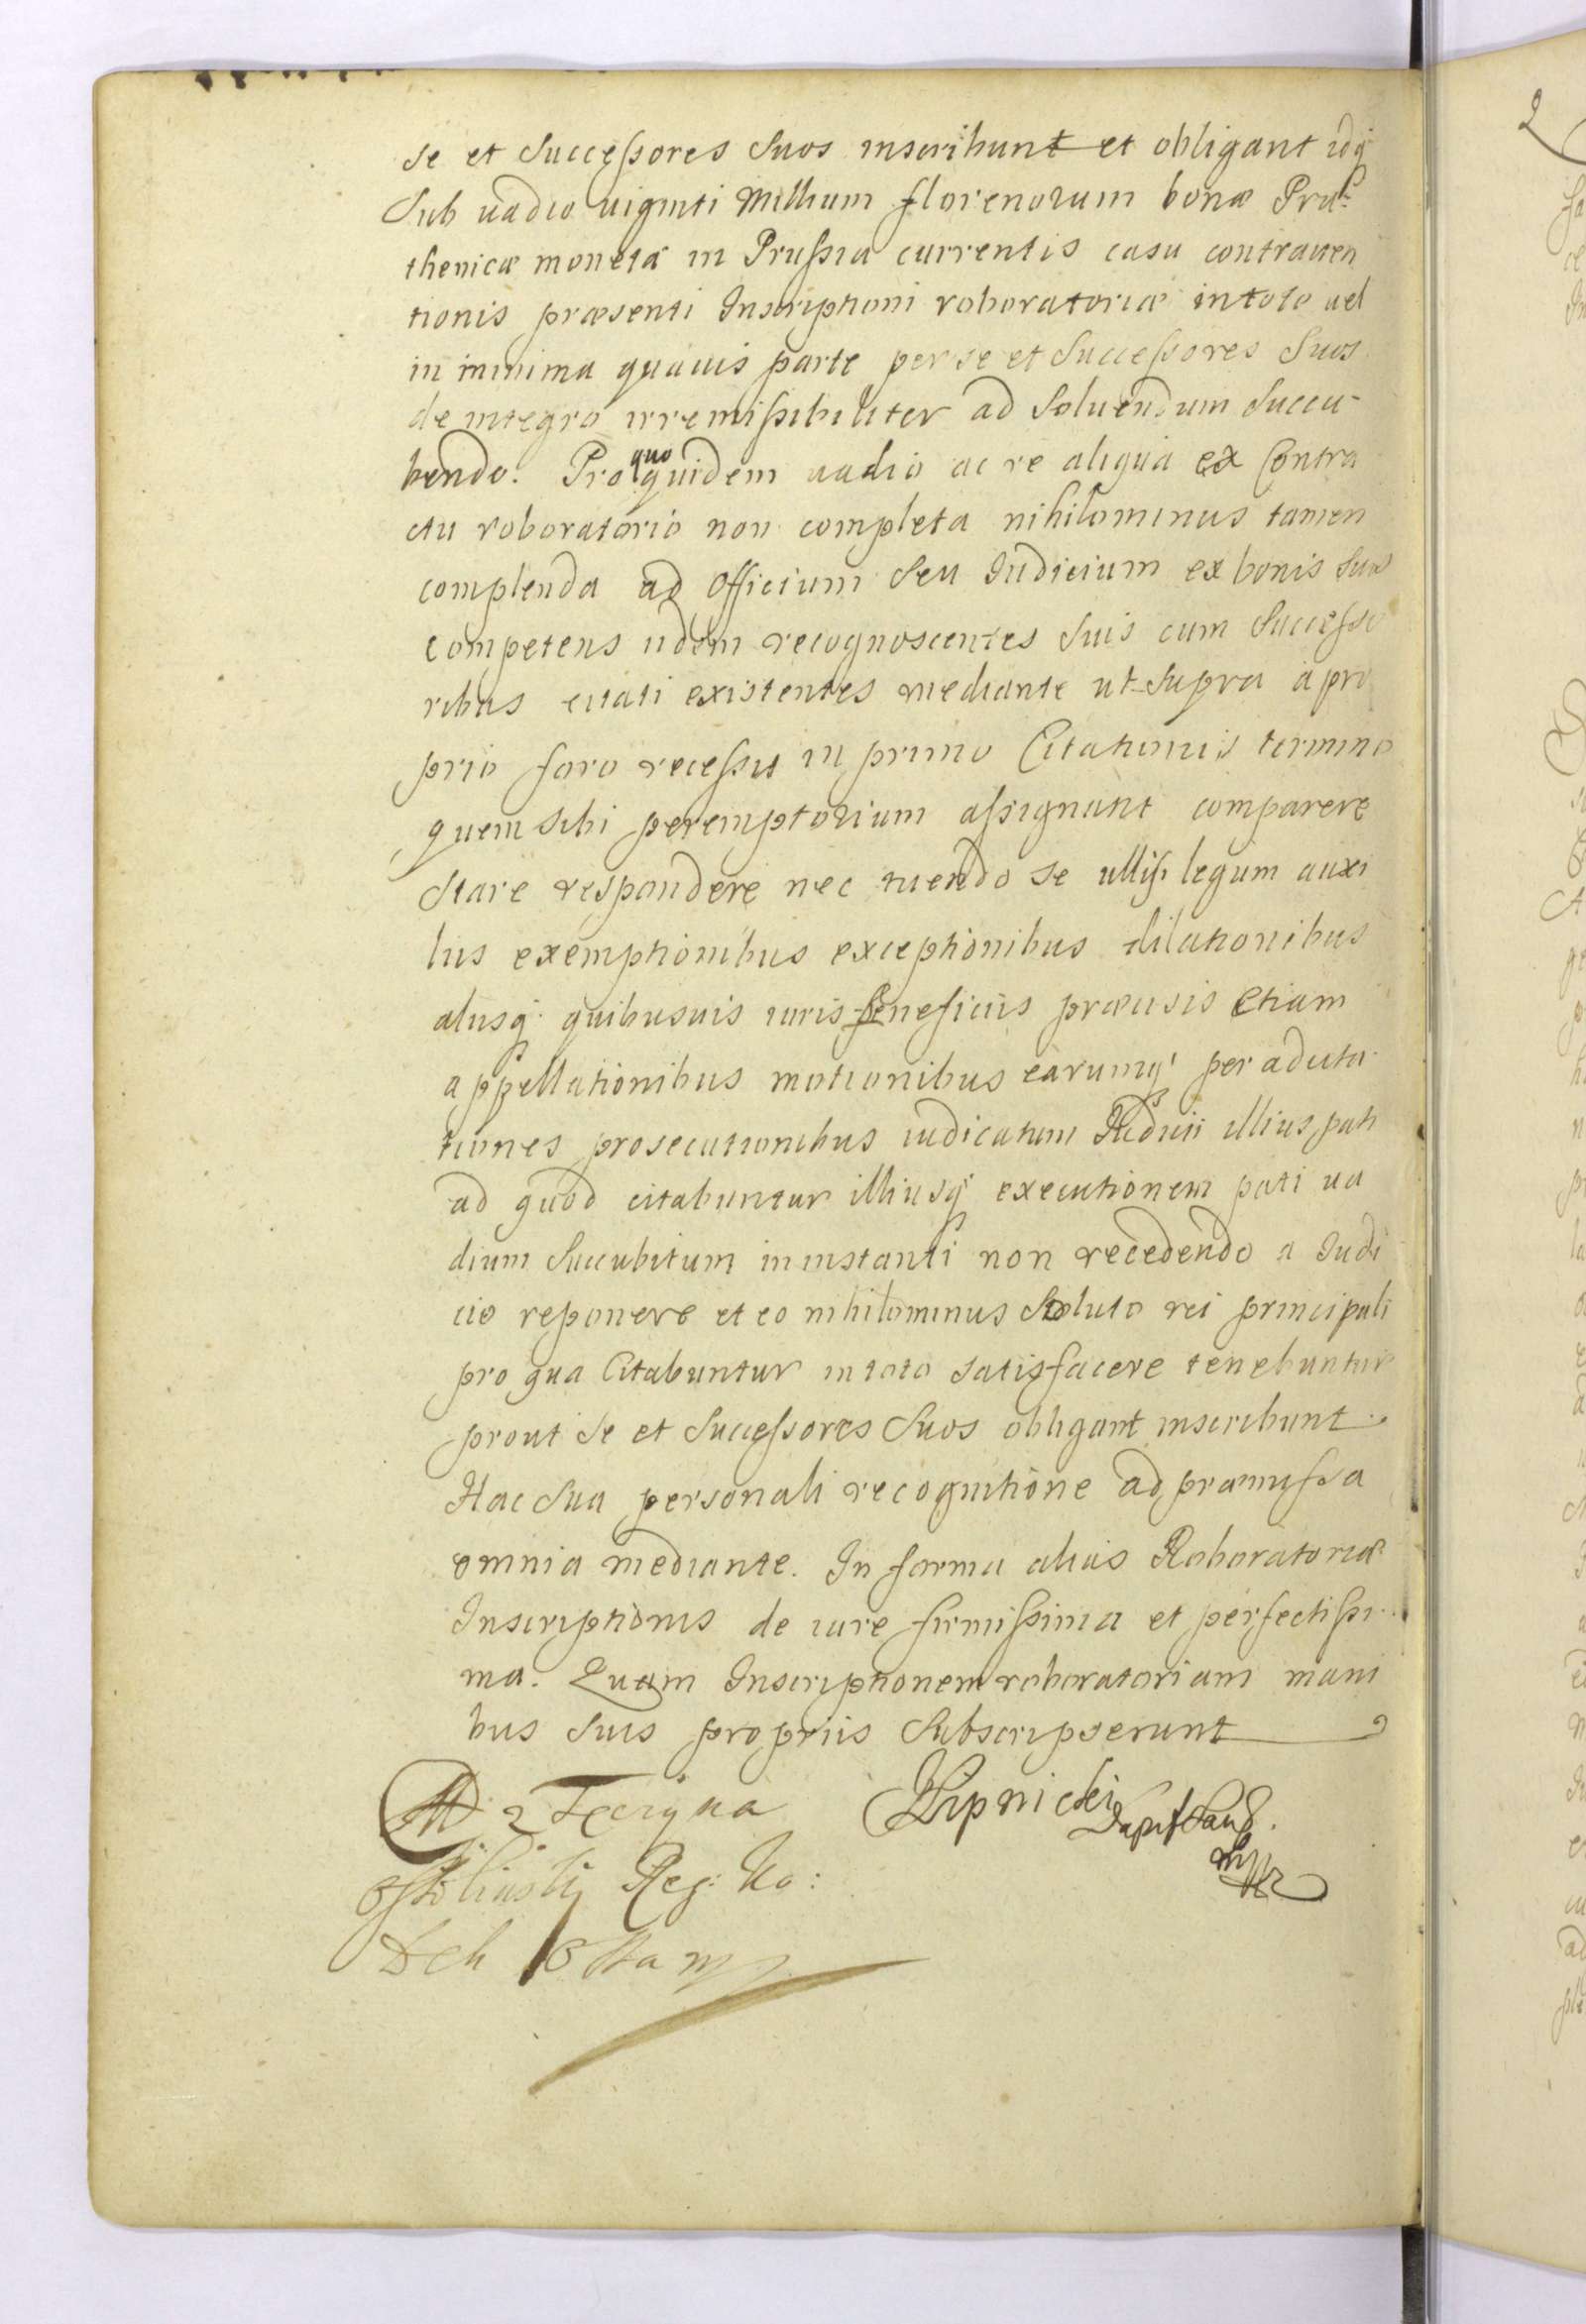 se et Successores Suos inscribunt et obligant idq
Sub uadio uiginti Millium florenorum bonæ Pru
thenicæ moneta in Prussia currentis casu contrauen
tionis præsenti Inscriptioni roboratoriæ in toto uel
in minima quauis parte per se et Successores Suos
de integro irremissibiliter ad Soluendum Succu
bendo. Pro quo quidem uadio ac re aliqua ex Contra
ctu roboratorio non completa nihilominus tamen
complenda ad Officium Seu Iudicium ex bonis Suis
competens iidem recognoscentes Suis cum Successo
ribus citati existentes mediante ut Supra a pro
prio foro recessu in primo Citationis termino
quem sibi peremptorium assignant comparere
Stare respondere nec tuendo se ullis legum auxi
liis exemptionibus exceptionibus dilationibus
aliisq quibusuis iuris beneficiis præuisis Etiam
appellationibus motionibus earumq per aducta
tiones prosecutionibus iudicatum Iudicii illius pati
ad quod citabuntur illiusq executionem pati ua
dium Succubitum in instanti non recedendo a Iudi
cio reponere et eo nihilominus Soluto rei principali
pro qua Citabuntur in toto satisfacere tenebuntur
prout se et Successores Suos obligant inscribunt.
Hac Sua personali recognitione ad præmissa
omnia mediante. In forma alias Roboratoriæ
Inscriptionis de iure firmissima et perfectissi
ma. Quam Inscriptionem roboratoriam mani
bus Suis propriis Subscripserunt